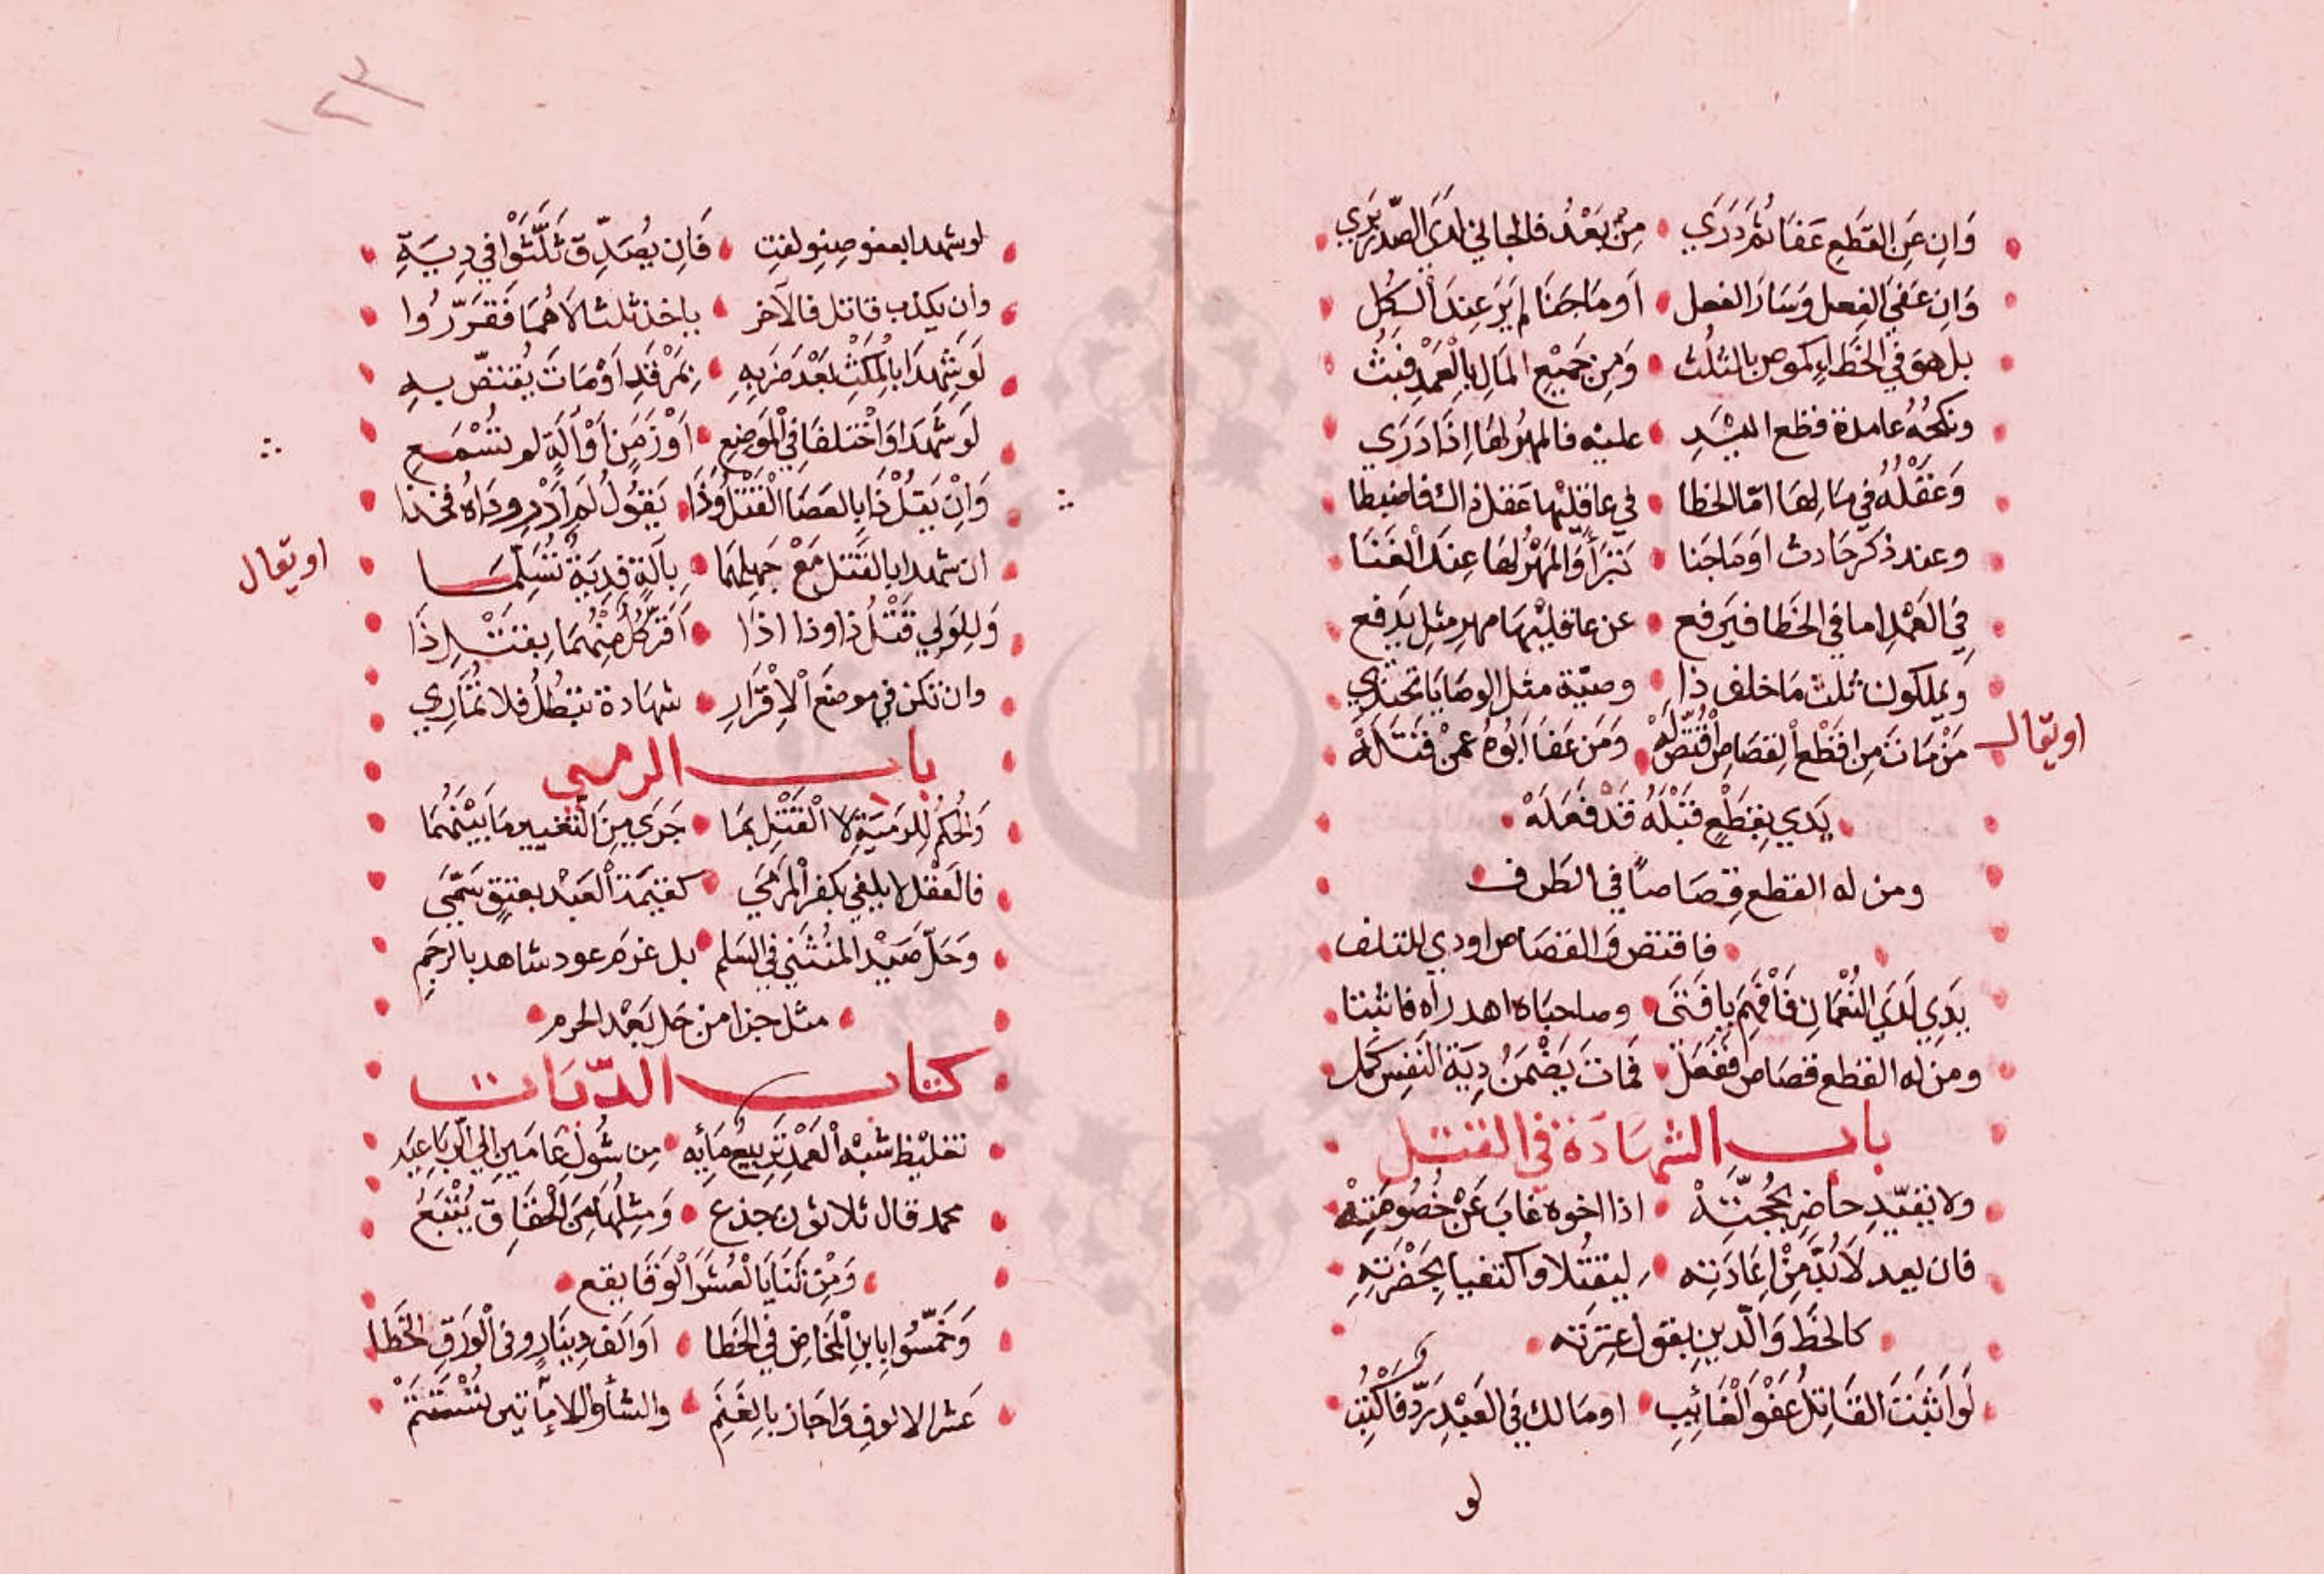 وَاِن عَنِ القَطعِ عَفَا ثُمَّ دَرَي مِنْ بَعْدُ فالجاني لدَى الصّدر بَرَي
وَاِن عَفَى الفِعل وَسَارَ الفعل اَو مَا جَنَا لم يَرَ عِندَ الكُلِ
بل هوَ في الخَطَاءِ كموصٍ بالثلُث وَمِن جَمِيْعِ المَالِ بِالْعَمْدِ فبُثُ
ونكحُهُ عامدة قطع اليَدِ عليْه فالمهرُ لهَا اِذَا دَرَي
وَعَقْلُهُ في مَالِهَا امّا الخطا في عاقليْها عَقل ذاك فاضبطا
وعند ذكر حَادث اوَ مَاجَنا تبَرَّأَ وَالمَهْرُ لهَا عِندَ الفَنَا
فِي العَمْدِ اما في الخَطا فيَرفع عن عاقليْهَا مهرِ مثلٍ يَدفع
ويملكون ثلث مَا خلف ذا وصيّة مثل الوصَايَا تحتذي
او يقال
مَنْ مَاتَ مِن اقَطْعِ القصَاصِ اقْتُصَّ لَهْ وَمَن عَفَا اَبُوهُ عمن قَتَلَهْ
يَدي بِقِطْعٍ قَبْلَهُ قَدْ فعَلَهْ
ومن له القطع قِصَاصاً في الطَرف
فاقتص وَالقصَاص اودي للتلف
يَدِي لَدَي النُعْمَانِ فَافْهَمْ يا فَتَى وصاحبَاه اهدراه فاثبتا
ومَن له القطع قصَاص ففعَل فماتَ يَضْمَنُ دِيَة النَفِس كمَل
باب الشهَادَة في القتل
ولا تُقيّدِ حاضِر بحُجّتِهْ اذا اخوه غابَ عَنْ خُصُومَتِهْ
فان يعد لَابُدَّ مِنْ اِعَادَتِه ليقتُلا واكتفيا بِحَضْرَتِهِ
كالخَطَ وَالّدينِ بقول عِتَرته
لَوَ اثبَتَ القَاتِلُ عَفْوَ الْغَائِبِ او مَالك في العَبْدِ رَدّ فَاكْتُبِ
لو
١٢٣
لو شهدا بعفو صِنوٍ لغتِ فَاِن يُصَدِّق ثَلَّثَوْا في دِيَةِ
وان يكذب قاتل فالآخر ياخذ ثلثا لا هُمَا فَقَرّرُوا
لَو شَهِدَا بالمُكْثِ بَعْدَ ضَربِهِ بمَرْقَدٍ اَوْ مَاتَ يُقتصّ بهِ
لَو شَهَدَا وَاخْتلفَا فِي الْمَوضِعِ اَوْ زَمَنِ اَوْ آلَةٍ لم تُسْمَعِ
وَاِنْ يَقلْ ذَا بالعَصَا القَتْلُ وَذَا يَقُولُ لَم اَدْرِ ودَاهُ فخذا
او يقال
ان شهدا بالقتل مَعْ جَهلِهمَا بِآلَةٍ فدِيَةُ تُسَلّمَا
وَلِلوَلي قَتْلُ ذا وذا اذَا اَقرّ كُل مِنْهُمَا بِقتْلِ ذَا
وان تكن في موضِعَ الْاِقْرَارِ شهَادة تبطُلُ فلا تُمَارِي
باب الرمي
وَالحُكمُ لِلرَميَةِ لا الْقَتْلِ بِمَا جَرَي مِنَ التّغييرِ مَا بَيْنَهُمَا
فالعَقْل لا يلغي بكفر المَرمَي كقيمَة العَبْد بعتقٍ سَمّيَ
وَحَلّ صَيْد المنُثَني في السَلمِ بل غرمَ عود شاهد بالرجَمِ
مثل جزا من حَل بَعْد الحرم
كتاب الدّيَات
تغليظ شبْه العَمْدِ تَربِيعُ مَايِه مِن سُول عَامَينِ اِلي الرّبَاعِيَه
محمد قال ثلاثون جذع وَمِثلُهَا مِنَ الْحِقَاق يُتْبَعُ
وَمِن ثَنَايَا الْعُشَرَا الْوَفَا يقع
وَخَمّسُوا بِابنِ الْمَخَاضِ في الخَطا اَو اَلف دِينَارٍ وفى الْوَرَقِ الخَطا
عَشر الالوفِ وَاجَاز بِالغَنَمِ والشأو الا ماتين تُسْتَتَمّ